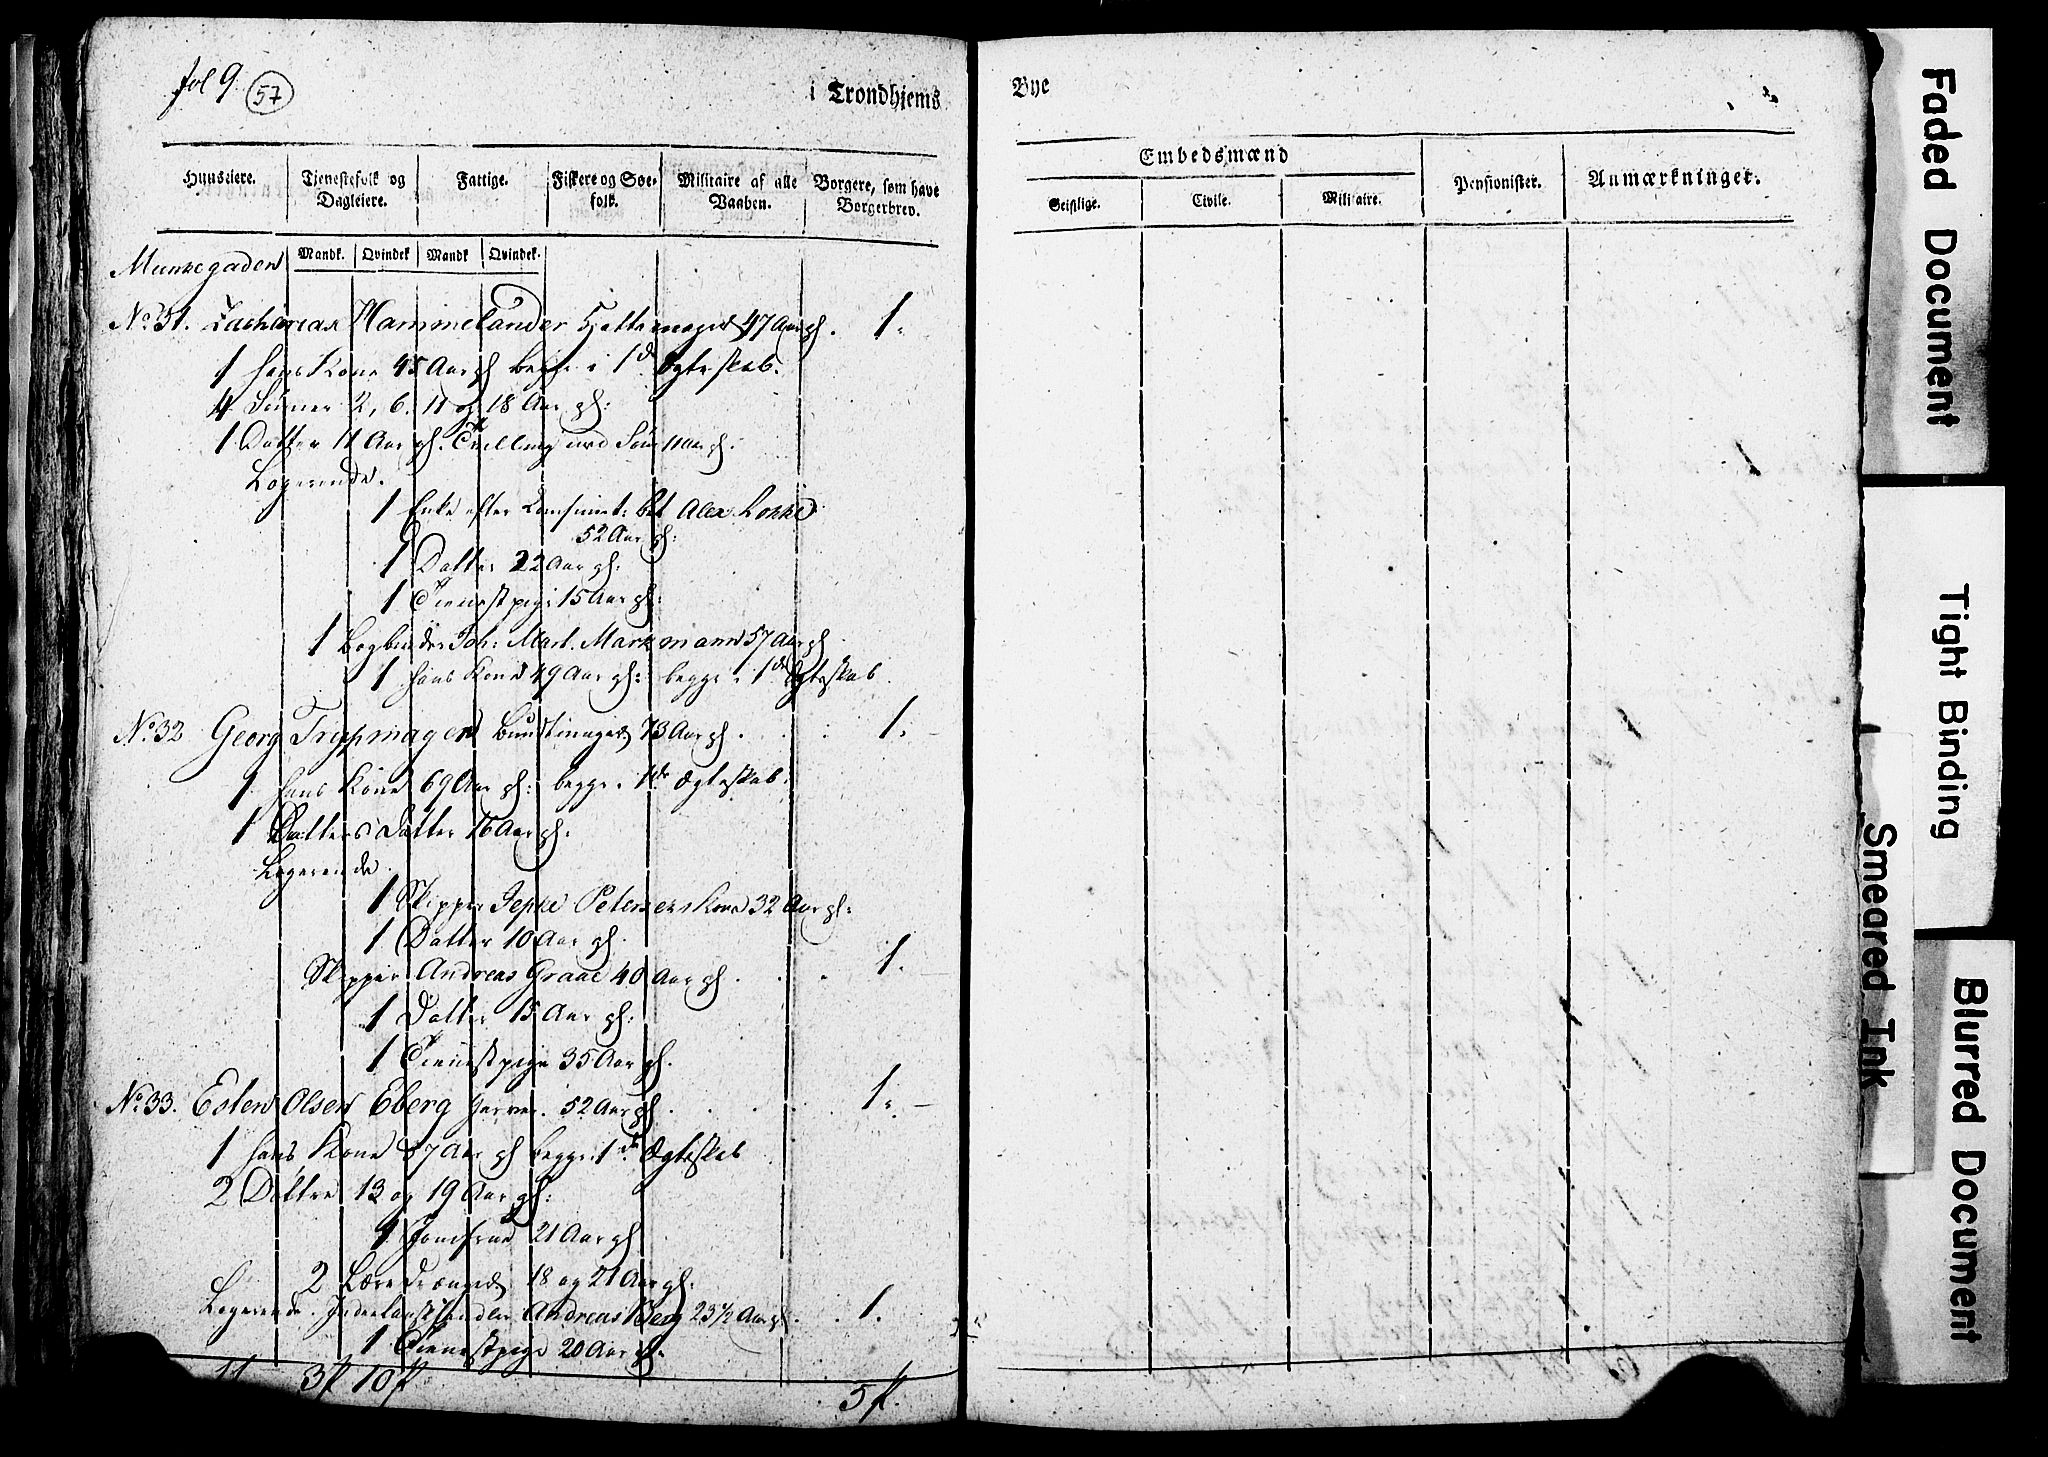 fol 9. 57
i Trondhjems
Bye
Huuseiere.
Tjenestefolk og Dagleiere.
Fattige.
Fiskere og Søe-folk.
Militaire af alle Vaaben.
Borgere, som have Borgerbrev.
Embedsmænd
Geistlige.
Civile.
Militaire.
Pensionister.
Anmærkninger.
Mandk. Qvindek Mandk Qvindek.
Munkegaden
No 31. Zacharias Hammelander Hattemager 47 Aar gl. 1.
1 hans Kone 45 Aar gl begge i 1de Ægteskab.
4 Sønner 2, 6, 11 og 18 Aar gl:
1 Datter 11 Aar gl. Tvilling med Søn 11 Aar gl:
Logerende.
1 Enke efter Alex Lokke
52 Aar gl:
1 Datter 22 Aar gl:
1 Tienestpige 15 Aar gl:
1 Bogbinder Joh: Mart. Markmann 57 Aar gl
1 hans Kone 49 Aar gl: begge i 1de Ægteskab
No 32 Georg Trippmager Buntmager 73 Aar gl. 1.
1 hans Kone 69 Aar gl: begge i 1de Ægteskab.
1 Datters Datter 16 Aar gl:
Logerende.
1 Skipper Jepke Petersens Kone 32 Aar gl:
1 Datter 10 Aar gl.
Skipper Andreas Graae 40 Aar gl. 1.
1 Datter 15 Aar gl:
1 Tienestpige 35 Aar gl.
No 33. Esten Olsen Eberg Garver. 52 Aar gl. 1.
1 hans Kone 57 Aar gl begge i 1de Ægteskab
2 Døttre 13 og 19 Aar gl:
1 Jomfrue 21 Aar gl
2 Læredrænge 18 og 21 Aar gl.
Logerende. Andreas Berg 23 1/2 Aar gl. 1.
1 Tienestpige 20 Aar gl.
11 3 10 5
Faded Document
Tight Binding
Smeared Ink
Blurred Document